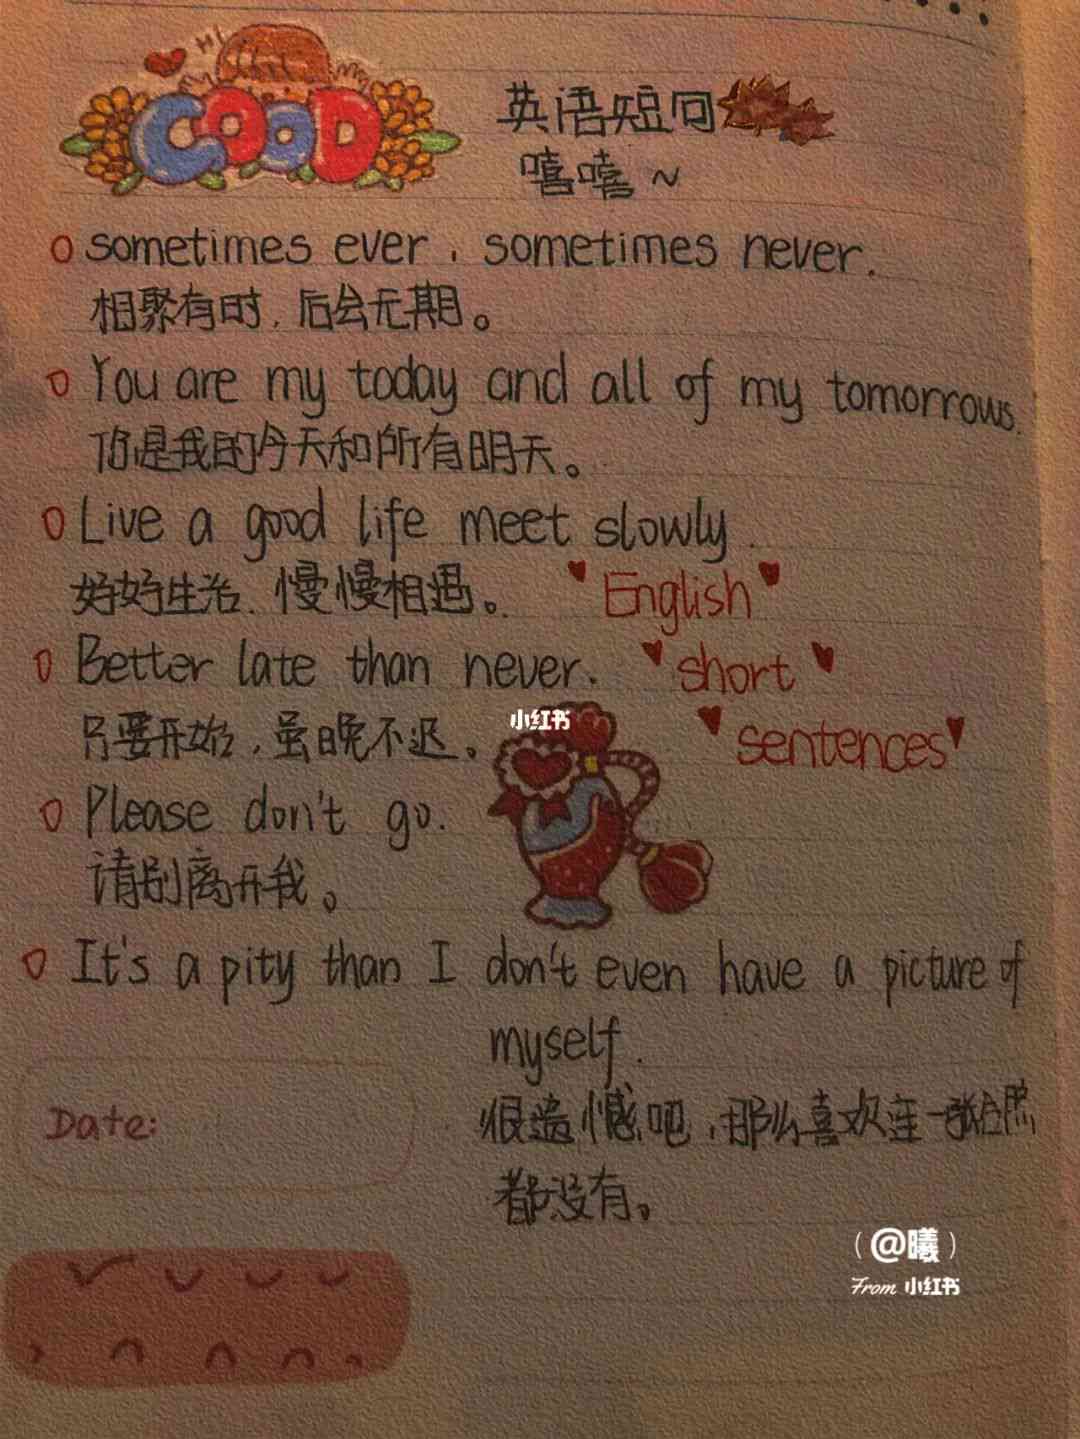 Hi
GOOD
英语短句
嘻嘻~
sometimes ever, sometimes never.
相聚有时,后会无期。
You are my today and all of my tomorrows.
你是我的今天和所有明天。
Live a good life meet slowly.
好好生活.慢慢相遇。
English
Better late than never.
short
只要开始,虽晚不迟。
小红书
sentences
Please don't go.
请别离开我。
It's a pity than I don't even have a picture of
myself.
Date:
很遗憾吧,那么喜欢连一张合照
都没有。
(@曦)
From 小红书